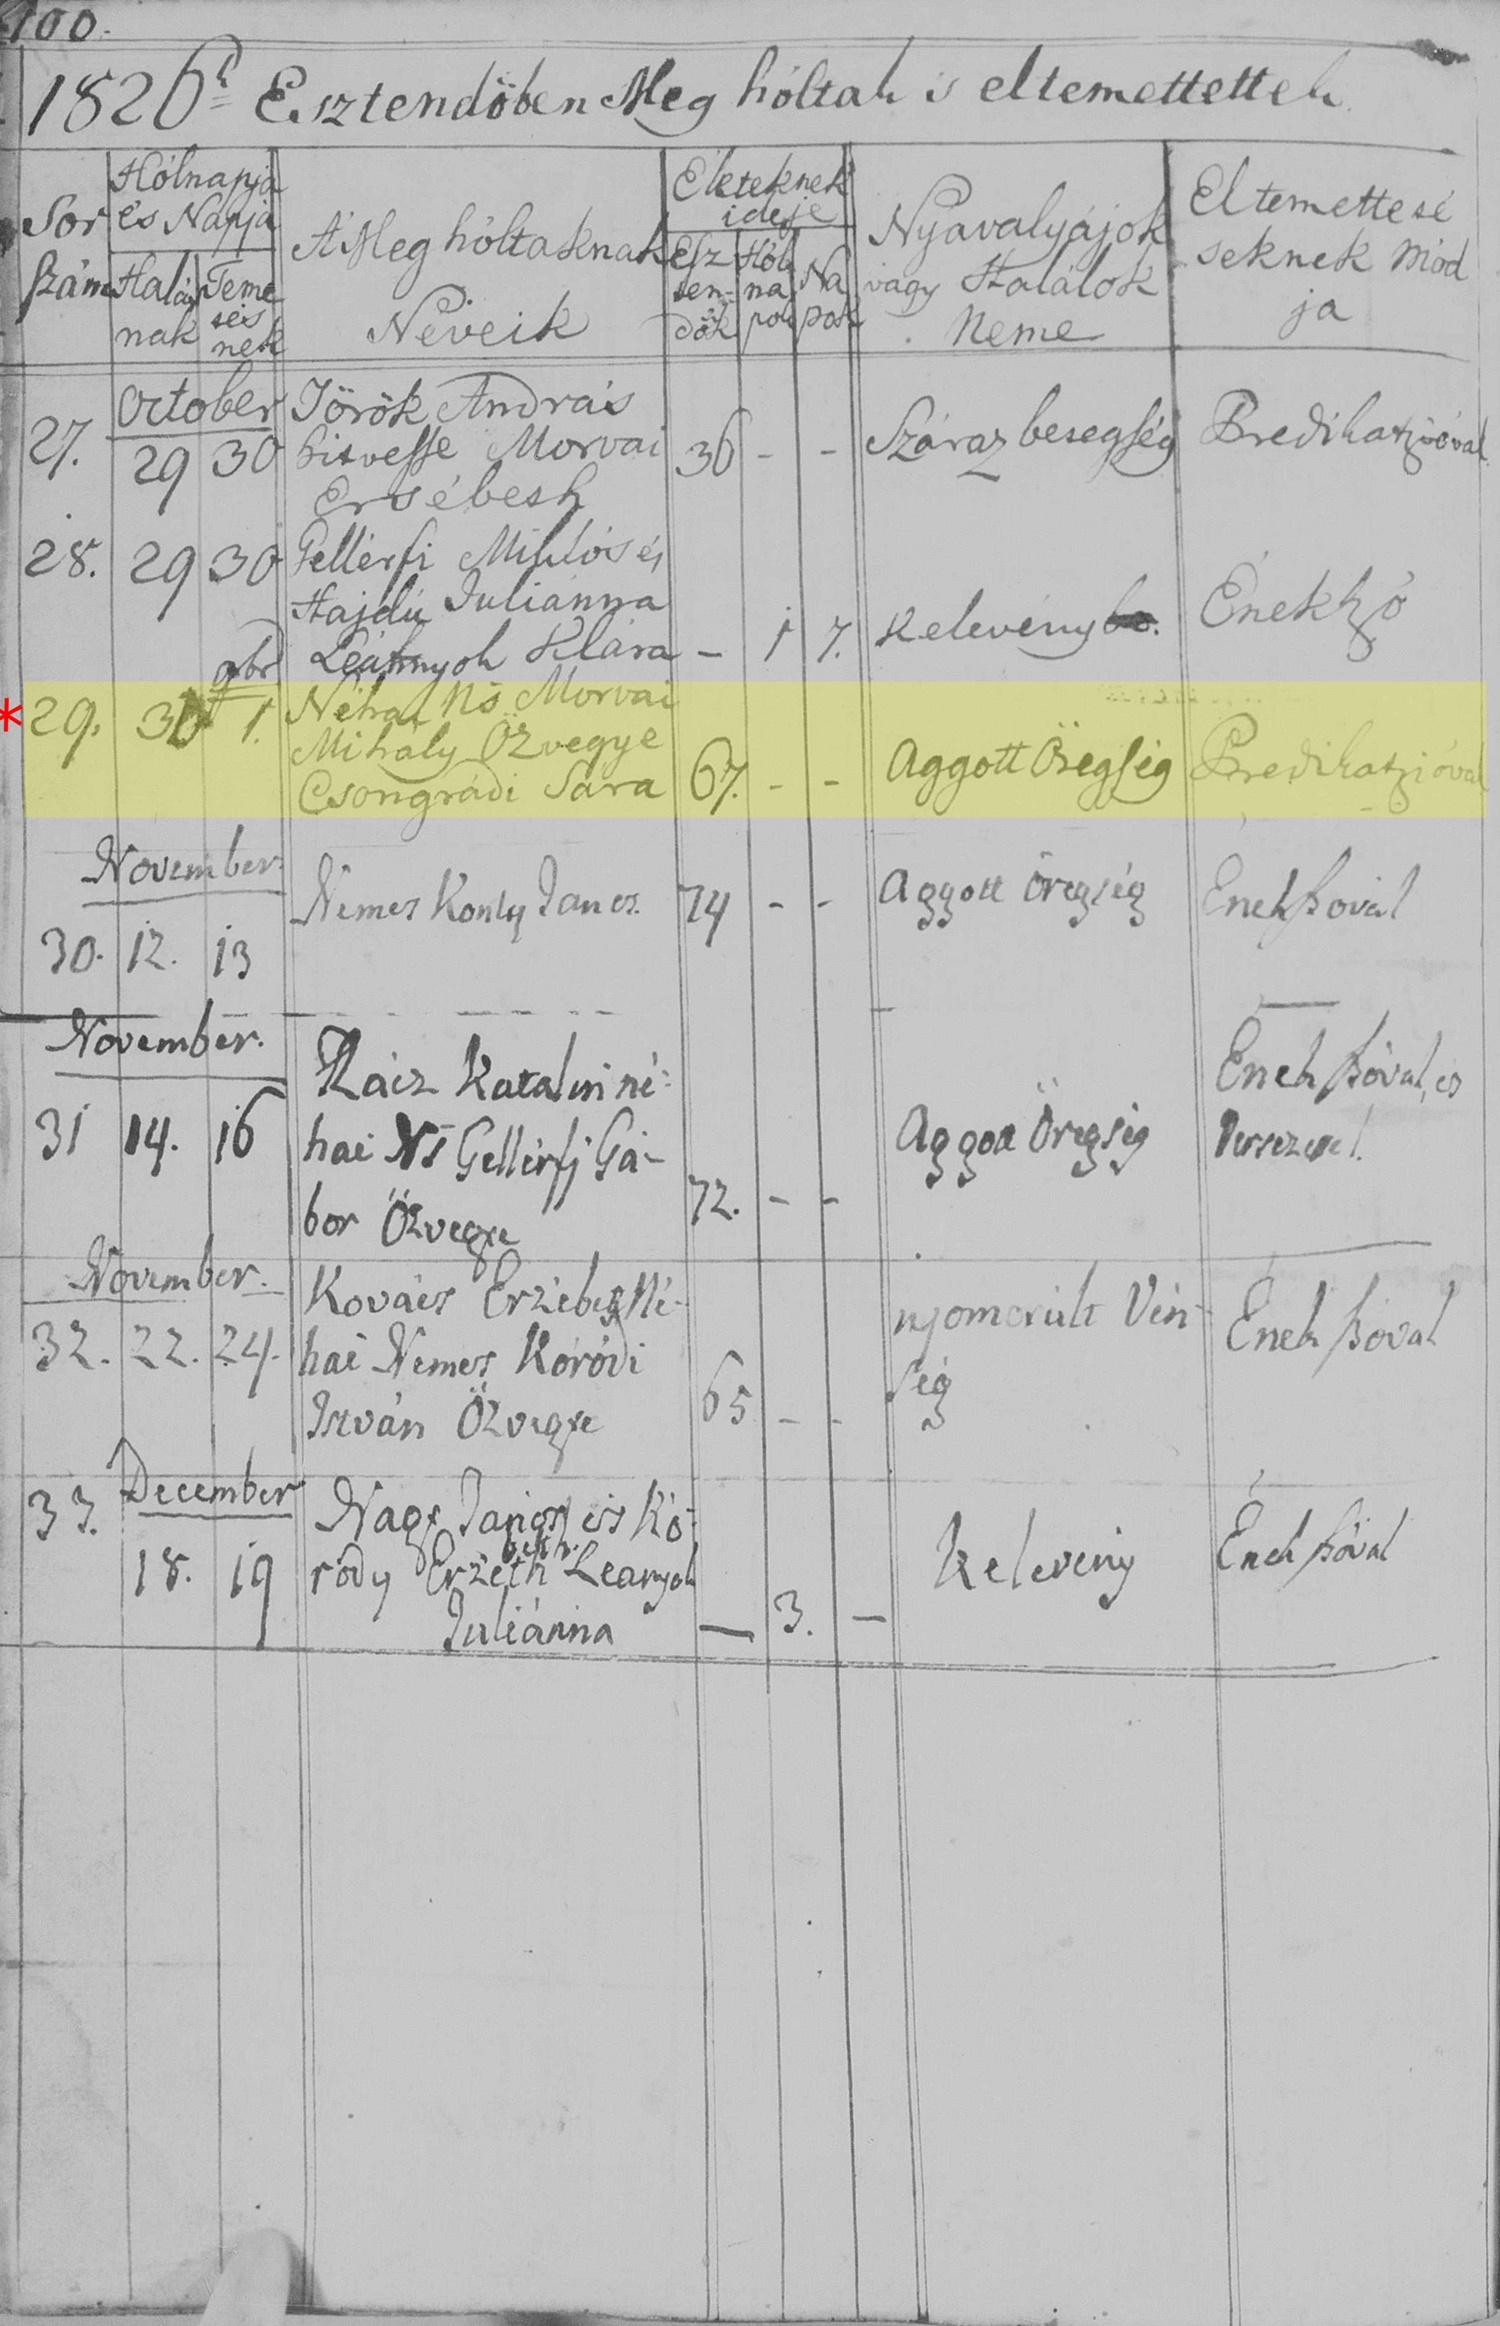 100.
1826k Esztendőben Meg hóltak 's eltemettettek
Sor szám
Hólnapja és Napja
Halálnak
Temetésnek
A Meg hóltaknak Neveik
Életeknek ideje
Esztendők
Hólnapok
Napok
Nyavalyájok vagy Halálok Neme
Eltemettetéseknek Módja
October
27. 29 30 Török András hitvesse Morvai Ersébeth 36 - - Száraz betegség Predikatzióval
28. 29 30 Gellérfi Miklós és Hajdú Juliánna Leánnyok Klára - 1 7. Kelevény Énekszó
9br
29. 30 1. Néhai Ns Morvai Mihály Özvegye Csongrádi Sára 67. - - Aggott Öregség Predikatzióval
November
30. 12. 13 Nemes Konty János 74 - - Aggott öregség Énekszóval
November.
31 14. 16 Rácz Katalin néhai Ns Gellérfj Gábor Özvegye 72. - - Aggott Öregség Énekszóval, es Versezettel.
November.
32. 22. 24. Kovács Erzsébet Néhai Nemes Kóródi István Özvegye 65 - - nyomorúlt Vénség Énekszóval
December
33. 18. 19 Nagy János és Kóródy Erzsébeth Leanyok Juliánna — 3. — Kelevény Énekszóval